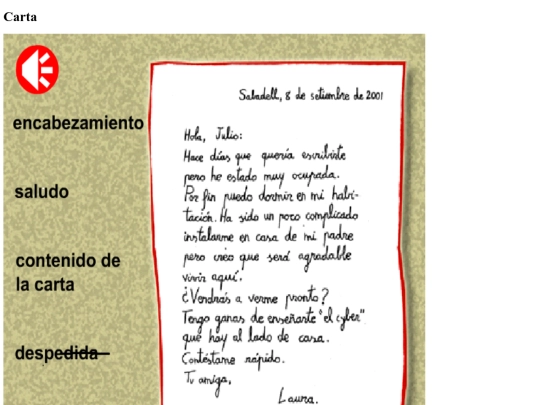 Carta
encabezamiento
saludo
contenido de
la carta
despedida
Sabadell, 8 de setiembre de 2001
Hola, Julio:
Hace días que quería escribirte
pero he estado muy ocupada.
Por fin puedo dormir en mi habi-
tación. Ha sido un poco complicado
instalarme en casa de mi padre
pero creo que será agradable
vivir aquí.
¿Vendrás a verme pronto?
Tengo ganas de enseñarte "el cyber"
que hay al lado de casa.
Contéstame rápido.
Tu amiga,
Laura.